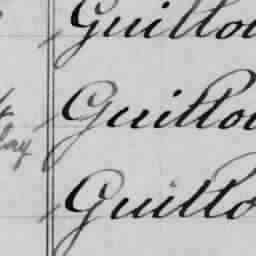 Guillou
Guillou
Guillo